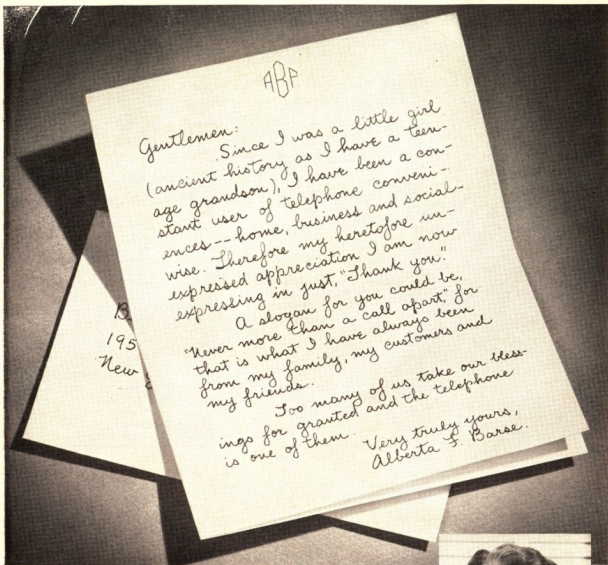 ABF
Gentlemen:
Since I was a little girl
(ancient history as I have a teen-
age grandson), I have been a con-
stant user of telephone conveni-
ences -- home, business and social-
wise. Therefore my heretofore un-
expressed appreciation I am now
expressing in just, "Thank you."
A slogan for you could be,
"Never more than a call apart," for
that is what I have always been
from my family, my customers and
my friends.
Too many of us take our bless-
ings for granted and the telephone
is one of them.
Very truly yours,
Alberta F. Barse.
B
195
New